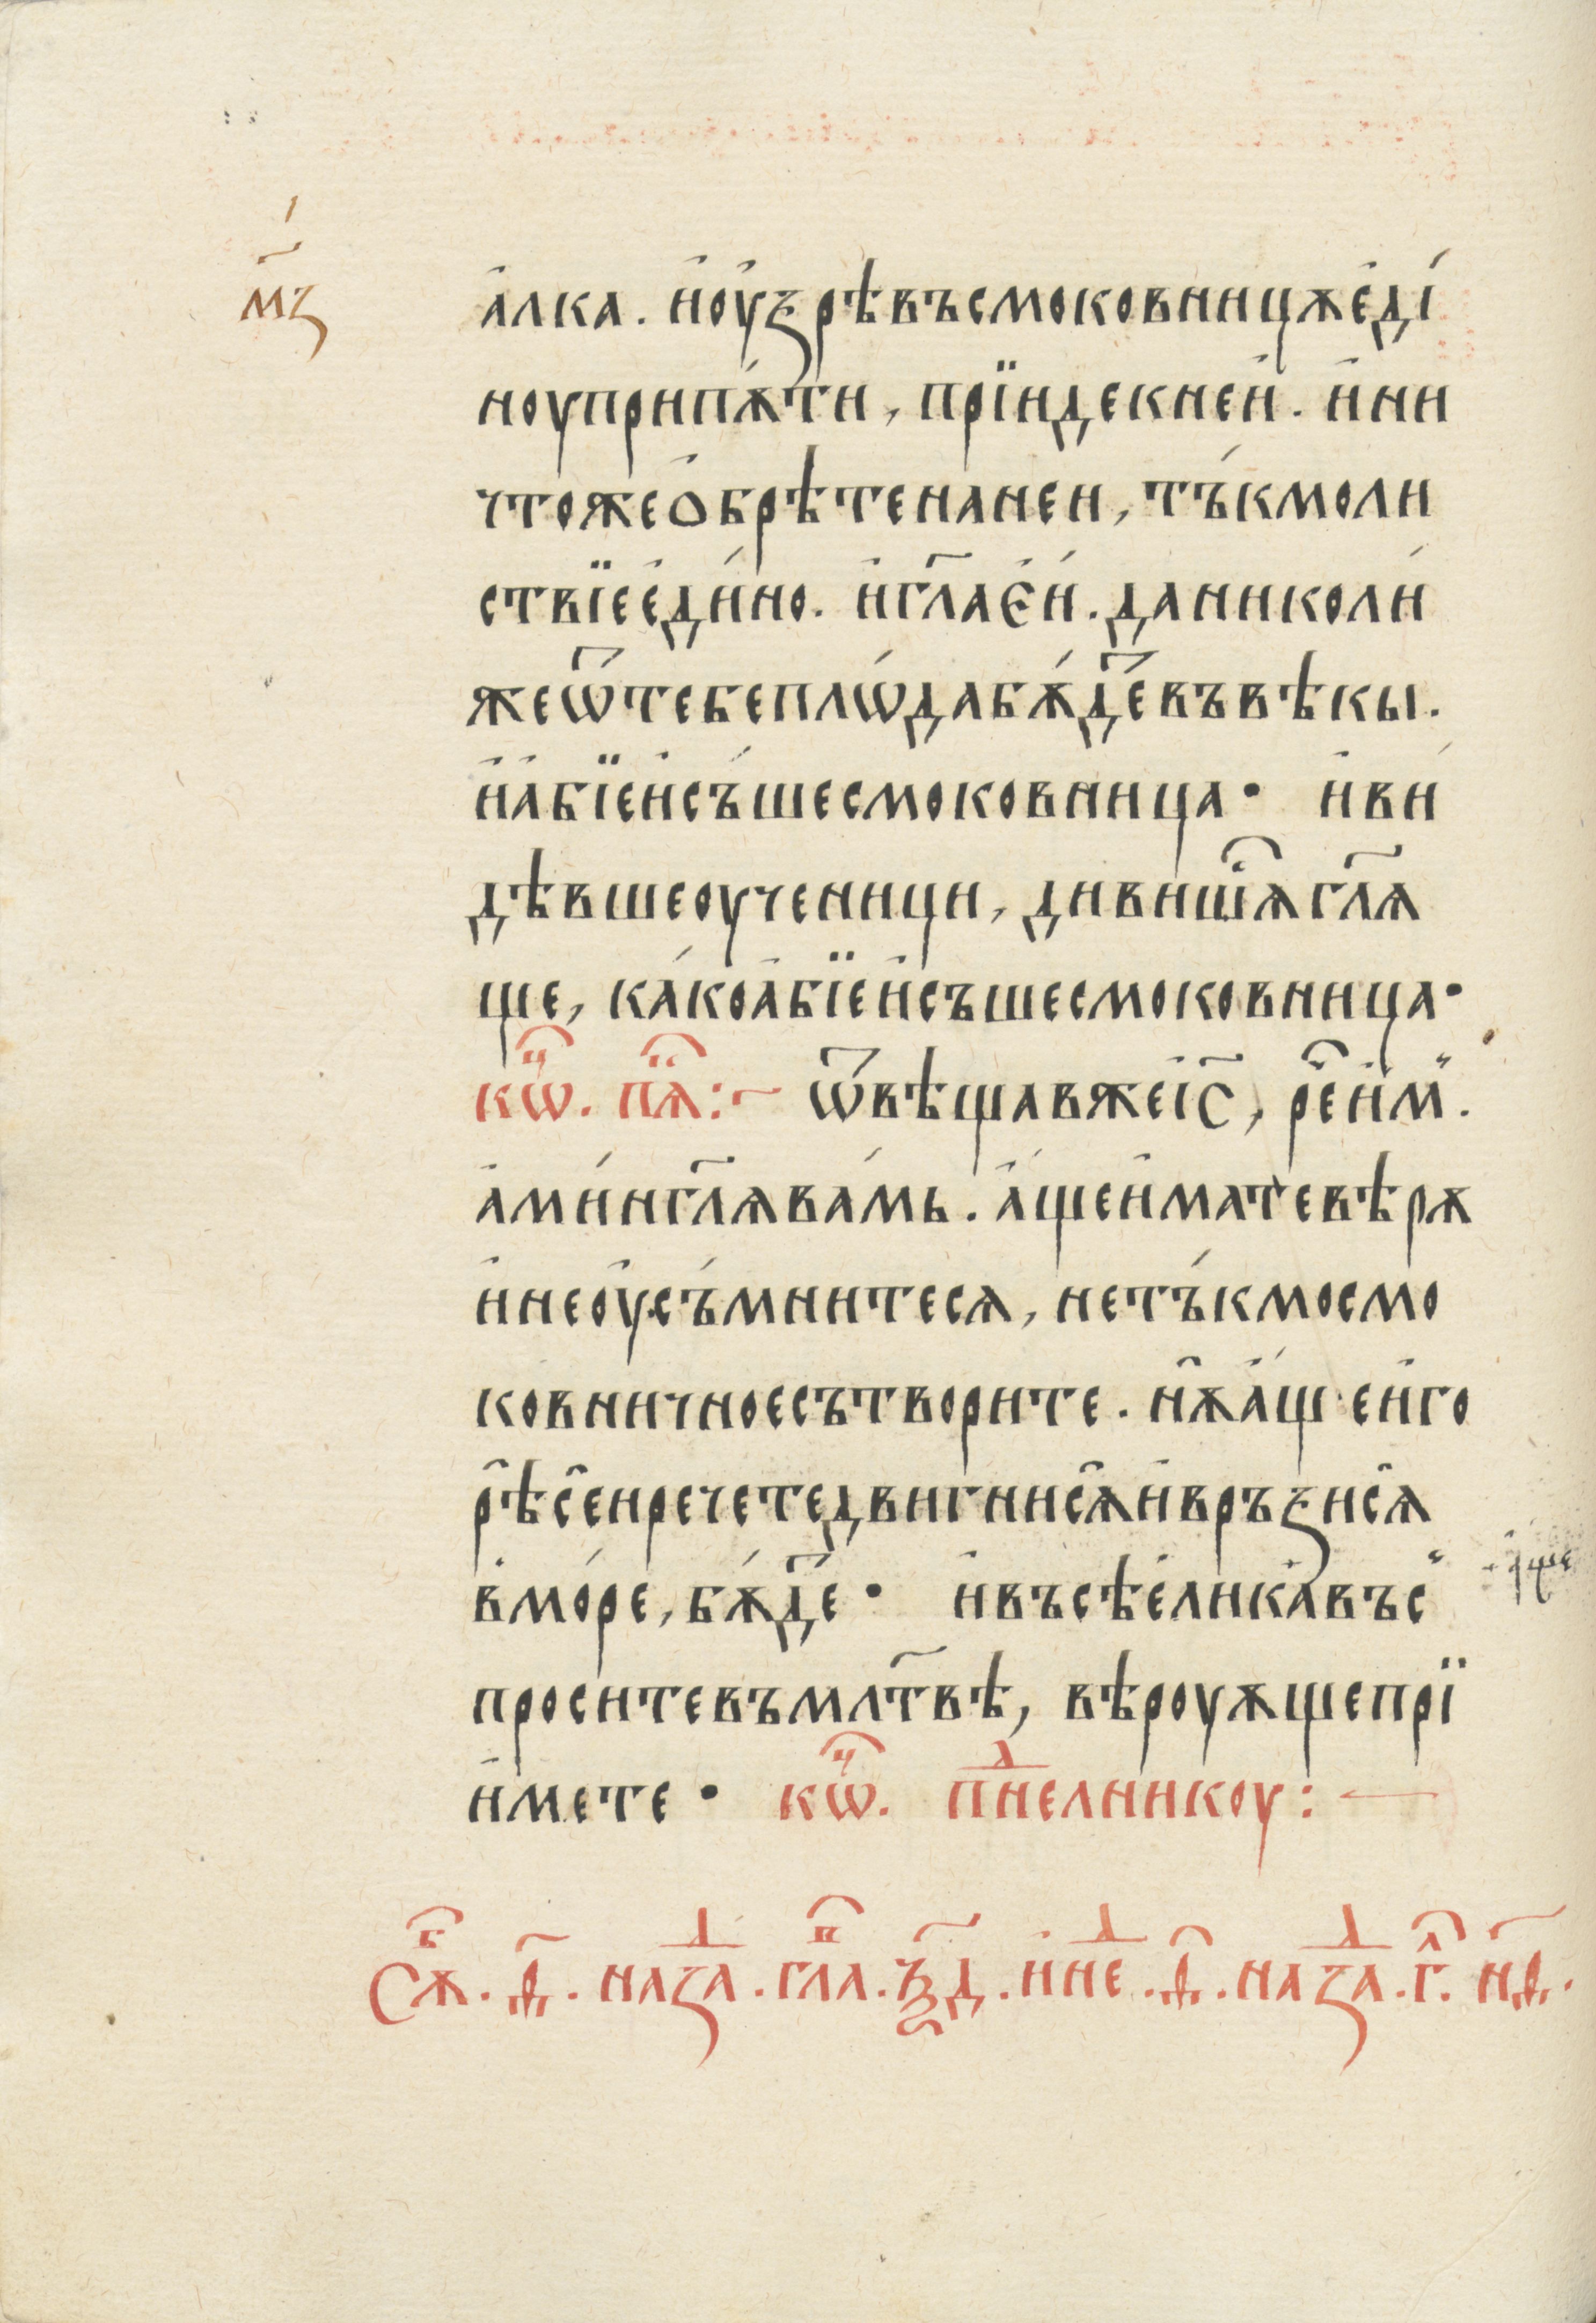 м҃з
а҆лка. и҆ оу҆зрѣвъ смоковницѫ е҆ді́
ноу при пѫ́ти, прїиде к неи҆. и҆ ни
чтоже о҆брѣте на неи, тъ́кмо ли
ствїе е҆ди́но. и҆ гл҃а є҆и́. да николи́
же ѿ тебе плѡ́да бѫ́деⷮ въ вѣкы.
и҆ а҆бїе и҆съ́ше смоковница· и҆ ви́
дѣвше оученици, дивишѧⷭ гл҃ѧ
ще, ка́ко а҆бїе и҆съше смоковница·
кѡ́ⷰ. пѧⷮ:~ ѿвѣщав же і҆с҃, реⷱ҇ и҆м̾.
а҆ми́н гл҃ѧ ва́мь. а҆́ще и҆мате вѣрѫ
и҆ не оу҆съ́мнитесѧ, не тъ́кмо смо
ковничное сътворите. нѫ̑ а҆́ще и҆ го
рѣ̑ се̑и речете двигнисѧ̑ и҆ връзисѧ̑
в̾ мо́ре, бѫ́деⷮ· и҆ въсѣ е҆лика҆ въс̾
просите въ мл҃твѣ, вѣроуѫще прїи
и҆мете· кѡ́ⷰ. пнⷣеⷧникоу: —
Сѫⷠ. д҃. на заⷱ. глаⷡ. ѯ҃д. и҆ неⷣ. д҃. на заⷱ. г҃. нд҃.